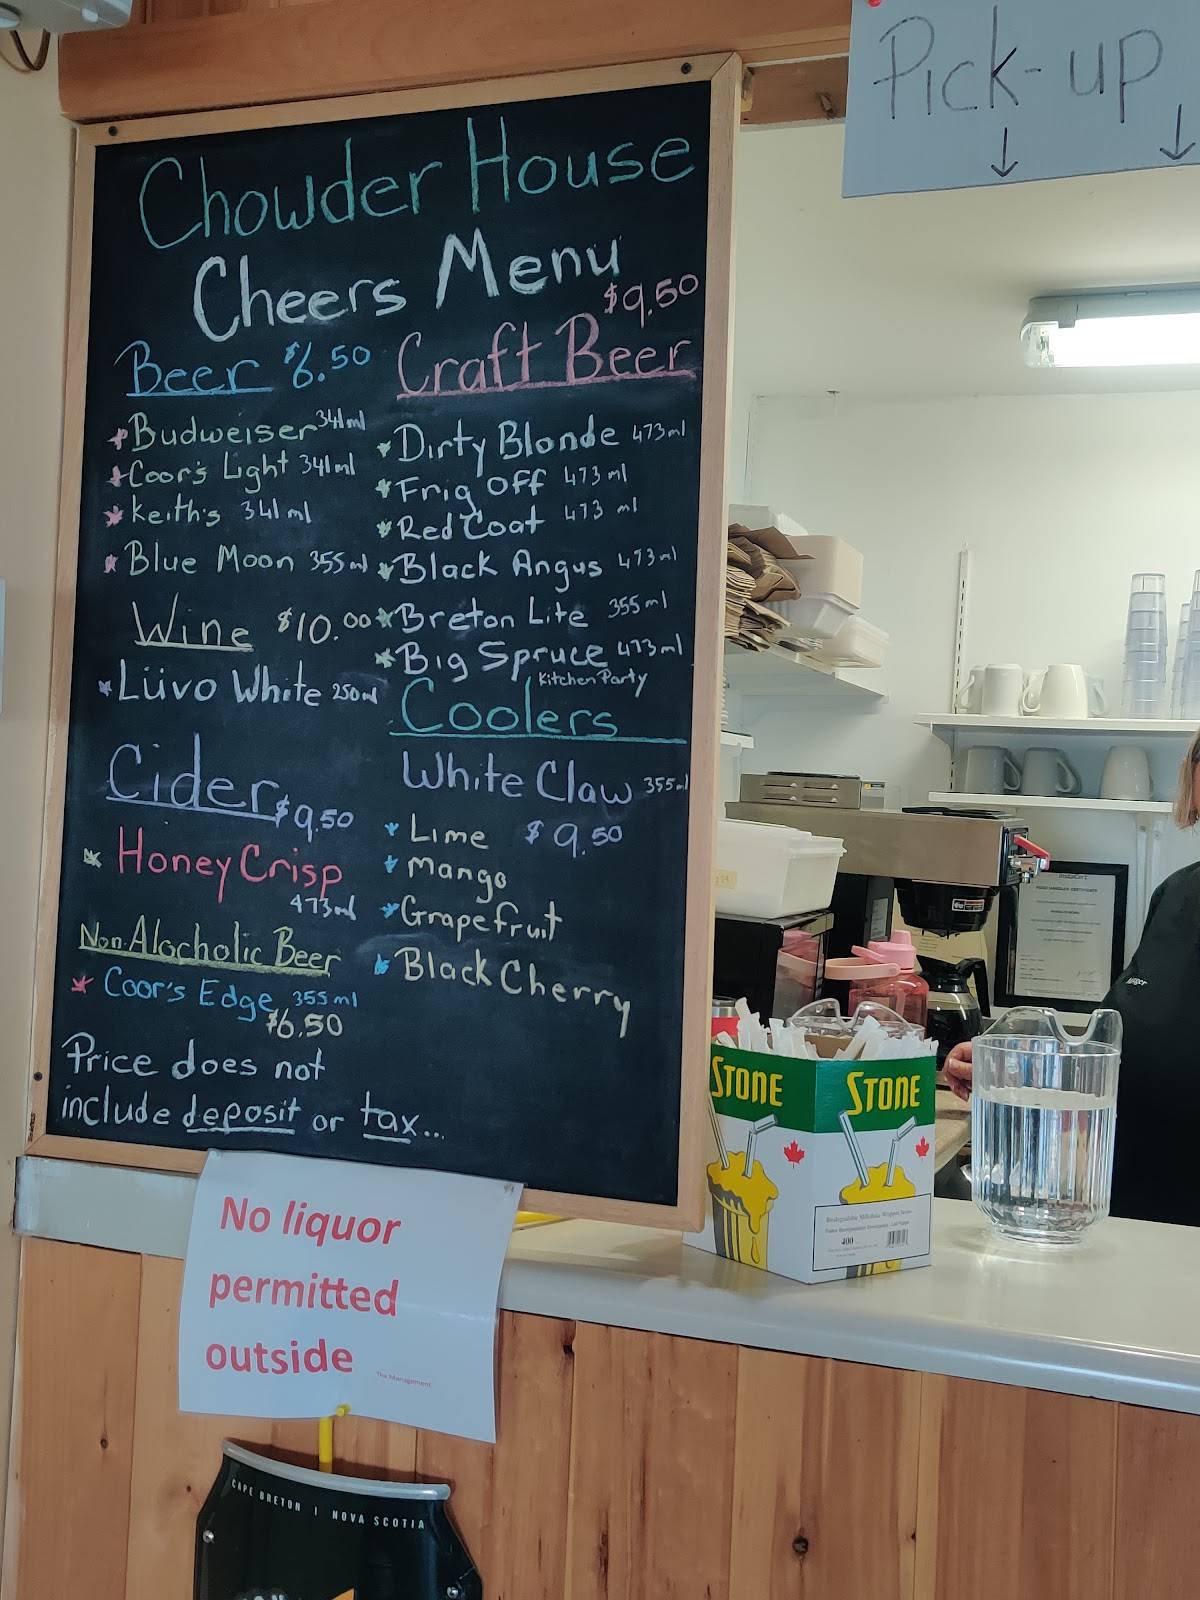 Pick-up
Chowder House
Cheers Menu
Beer $6.50
Budweiser 341ml
Coor's Light 341ml
Keith's 341ml
Blue Moon 355ml
Wine $10.00
Lüvo White 250ml
Cider $9.50
Honey Crisp
473ml
Non-Alocholic Beer
Coor's Edge 355ml
$6.50
Price does not
include deposit or tax...
$9.50
Craft Beer
Dirty Blonde 473ml
Frig Off 473ml
Red Coat 473ml
Black Angus 473ml
Breton Lite 355ml
Big Spruce 473ml
Kitchen Party
Coolers
White Claw 355ml
Lime $9.50
Mango
Grapefruit
Black Cherry
No liquor
permitted
outside
The Management
STONE
STONE
400
CAPE BRETON | NOVA SCOTIA